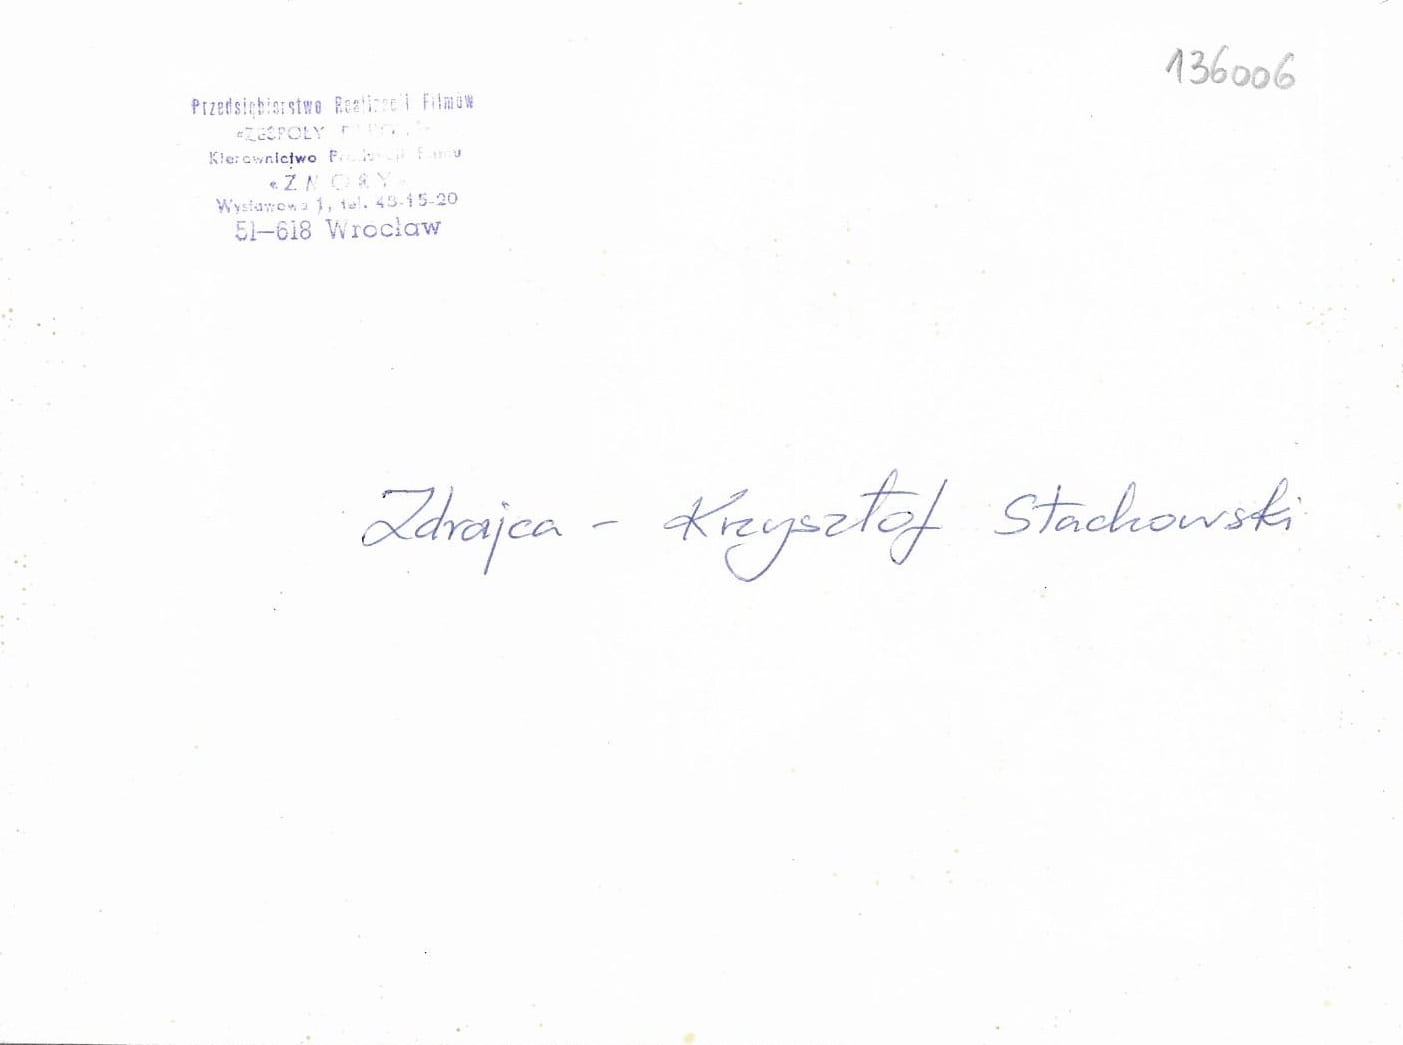 136006
Przedsiębiorstwo Realizacji Filmów
«ZESPOŁY
Kierownictwo Produkcji Filmu
Wystawowa 1, tel. 48-15-20
51-618 Wrocław
Zdrajca - Krzysztof Stachowski